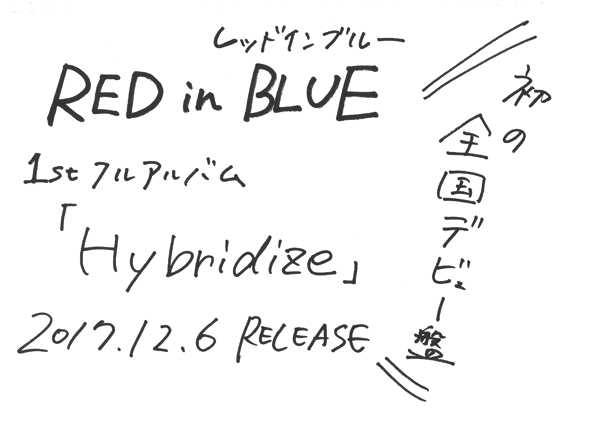 レッドインブルー
RED in BLUE
1st フルアルバム
「Hybridize」
2017.12.6 RELEASE
初の
全国デビュー盤